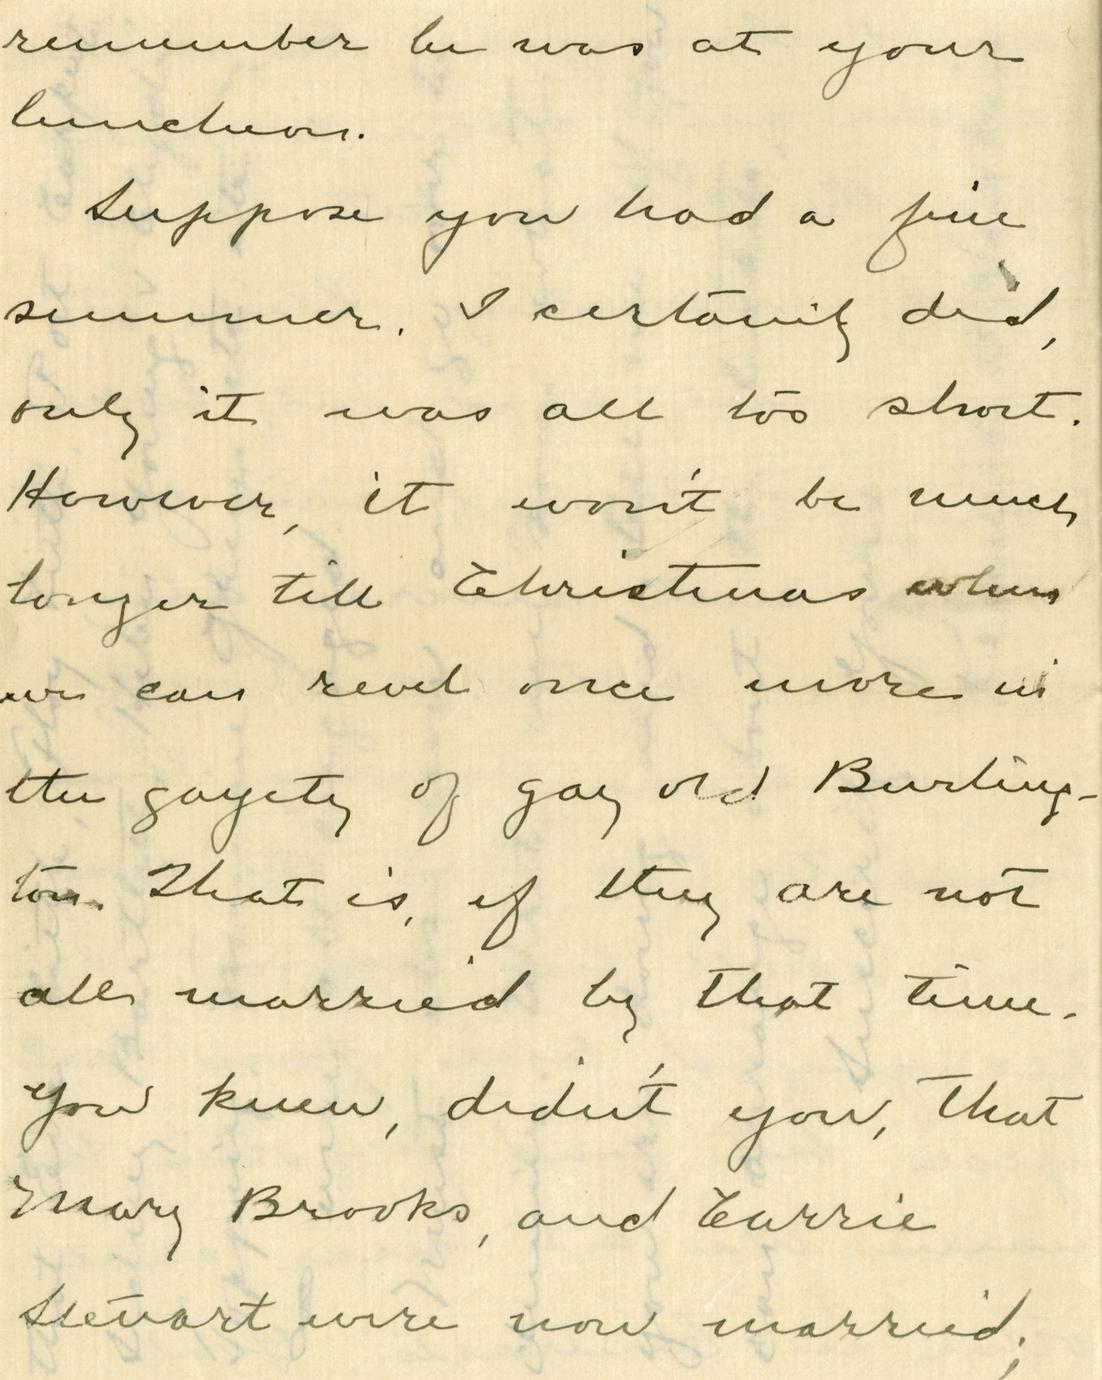 remember he was at your
luncheon.
Suppose you had a fine
summer. I certainly did,
only it was all too short.
However, it won't be much
longer till Christmas when
we can revel once more in
the gayety of gay old Burling-
ton. That is, if they are not
all married by that time.
You knew, didn't you, that
Mary Brooks, and Carrie
Stewart were now married;